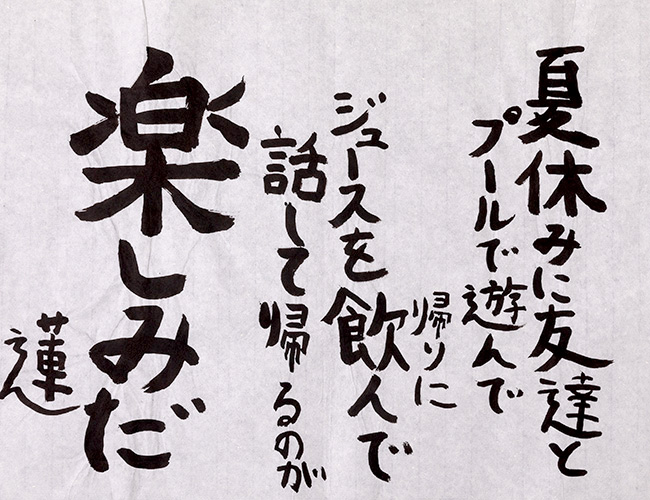 夏休みに友達と
プールで遊んで
帰りに
ジュースを飲んで
話して帰るのが
楽しみだ
蓮